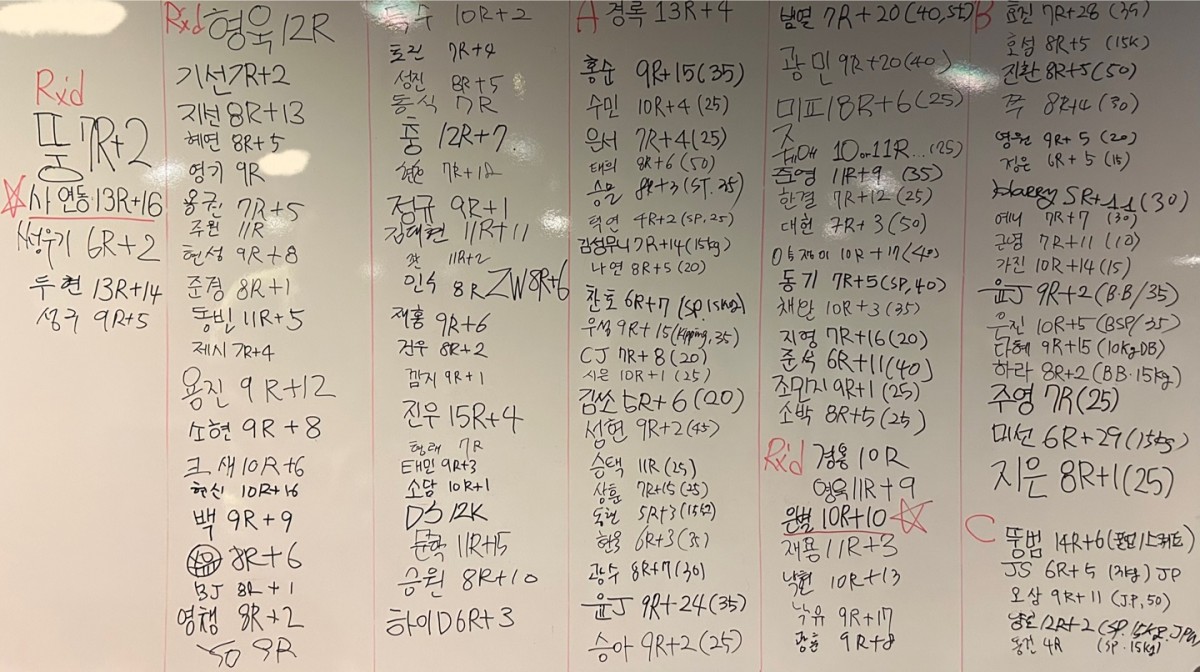 Rxd
뚱 7R+2
사연동 13R+16
성우기 6R+2
두현 13R+14
성구 9R+5
Rxd 형욱 12R
기선 7R+2
지현 8R+13
혜연 8R+5
영기 9R
용권 7R+5
주현 11R
현성 9R+8
준경 8R+1
동빈 11R+5
제시 7R+4
용진 9R+12
소현 9R+8
크새 10R+6
현신 10R+16
백 9R+9
8R+6
BJ 8R+1
영챔 8R+2
9R
득수 10R+2
효진 7R+4
성진 8R+5
동식 7R
홍 12R+7
7R+12
정규 9R+1
김태현 11R+11
11R+2
인식 8R ZW8R+6
재홍 9R+6
건우 8R+2
깜지 9R+1
진우 15R+4
형래 7R
태민 9R+3
소담 10R+1
DS 12R
문학 11R+15
승원 8R+10
하이D 6R+3
A 경록 13R+4
홍순 9R+15(35)
수민 10R+4(25)
은서 7R+4(25)
태희 8R+6(50)
승모 8R+3(ST.35)
력연 4R+2(SP,25)
김성우니 7R+14(15kg)
나연 8R+5(20)
찬호 6R+7(SP.15kg)
우석 9R+15(Kipping,35)
CJ 7R+8(20)
시은 10R+1(25)
김쏘 5R+6(20)
성현 9R+2(45)
승택 11R(25)
상훈 7R+15(25)
독현 5R+3(15kg)
현욱 6R+3(35)
광수 8R+7(30)
윤J 9R+24(35)
승아 9R+2(25)
범열 7R+20(40,st)
광민 9R+20(40)
미피 18R+6(25)
10 or 11R...(25)
준영 11R+9(35)
한결 7R+12(25)
대현 7R+3(50)
10R+17(40)
동기 7R+5(SP,40)
채만 10R+3(35)
지영 7R+16(20)
준석 6R+11(40)
조만지 9R+1(25)
소박 8R+5(25)
Rxd 경용 10R
영욱 11R+9
은별 10R+10
재용 11R+3
낙현 10R+13
낙유 9R+17
광훈 9R+8
B 효진 7R+28(35)
호섭 8R+5(15k)
진환 8R+5(50)
쪽 8R+4(30)
영원 9R+5(20)
정은 6R+5(15)
Harry 5R+11(30)
예니 7R+7(30)
근영 7R+11(10)
가진 10R+14(15)
윤J 9R+2(B.B/35)
우진 10R+5(BSP/35)
다혜 9R+15(10kgDB)
하라 8R+2(BB.15kg)
주영 7R(25)
미선 6R+29(15kg)
지은 8R+1(25)
C 뚱범 14R+6
JS 6R+5 JP
오삼 9R+11(JP,50)
12R+2(SP.15kg.JP)
동건 4R (SP.15kg)